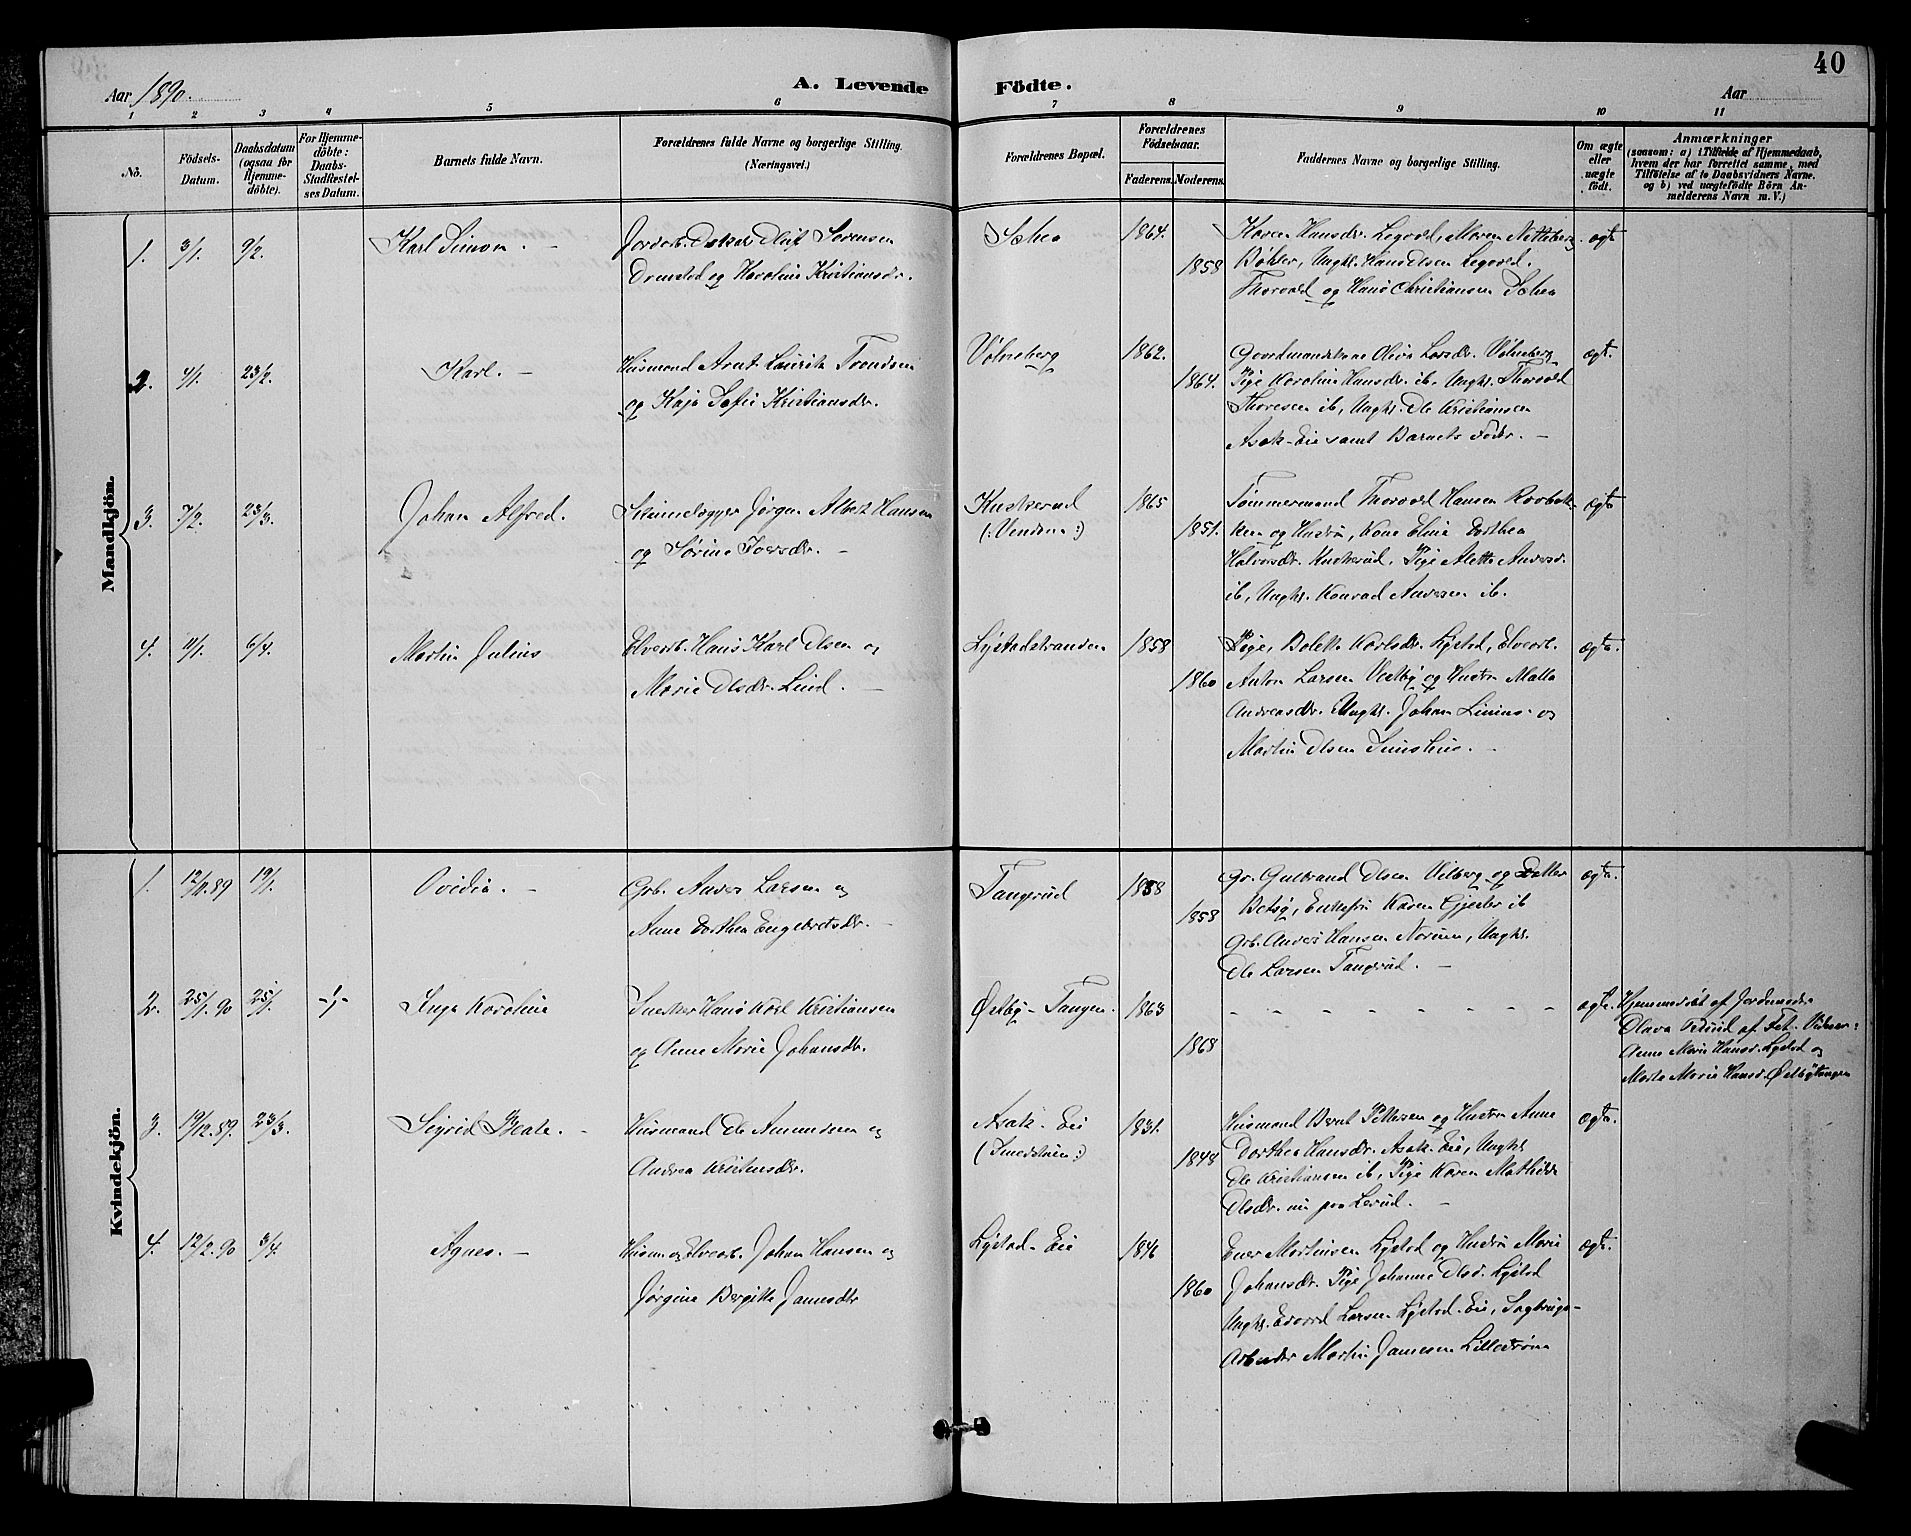 40
Aar 1890.
A. Levende Födte.
Aar
1 2 3 4 5 6 7 8 9 10 11
No.
Födsels-Datum.
Daabsdatum (ogsaa for Hjemme-döbte).
For Hjemme-döbte: Daabs-Stadfæstel-ses Datum.
Barnets fulde Navn.
Forældrenes fulde Navne og borgerlige Stilling. (Næringsvei.)
Forældrenes Bopæl.
Forældrenes Födselsaar.
Faderens. Moderens.
Faddernes Navne og borgerlige Stilling.
Om ægte eller uægte födt.
Anmærkninger
(saasom: a) i Tilfælde af Hjemmedaab,
hvem der har forrettet samme, med
Tilföielse af to Daabsvidners Navne.
og b) ved uægtefödte Börn An-
melderens Navn m. V.)
Mandkjön.
1. 3/1. 9/2. Karl Simon. -
Jordarb. Oskar Oluf Sørensen
Drensted og Karoline Kristiansdr.
Sæhea
1864.
1858
Karen Hansdr. Legvold, Maren
Bøhler, Ungk. Hans Olsen Legvold.
Thorvald og Hans Christiansen Sæhea
ægte
2. 4/1. 23/2. Karl. -
Husmand Arnt Laurits Trondsen
og Kaja Sofie Kristiansdr.
Volneberg
1862.
1864.
Gaardmandskone Olivia Larsdr. Volneberg
Pige Karoline Hansdr. ib, Ungk. Thorvald
Thoresen ib, Ungk. Ole Kristiansen
Asak-Eie samt Barnets Fader. -
ægte.
3. 7/2. 23/3. Johan Alfred.
Skinnelægger Jørgen Albert Hansen
og Sørine Iversdr. -
Kuskerud
(:Venden:)
1865
1851.
Tømmermand Thorvald Hansen Roobak-
ken og Hustru, Kone Eline Dorthea
Halvorsdr. Kuskerud, Pige Alette Andersdr.
ib, Ungk. Konrad Andersen ib.
ægte
4. 11/1. 6/4. Martin Julius
Elvearb. Hans Karl Olsen og
Marie Olsdr. Lind. -
Lystadstranden
1858
1860
Pige, Bolette Karlsdr. Lystad, Elvearb.
Anton Larsen Vestby og Hustru Malla
Andreasdr. Ungk. Johan Linius- og
Martin Olsen
ægte.
Kvindekjön.
1. 12/11.89 19/1. Ovidia. -
Grb. Anders Larsen og
Anne Dorthea Engebretsdr. -
Tangerud
1858
1858
Gr. Gulbrand Olsen Vilberg og Datter
Betsy, Enkefru Karen Gjesler ib
Grb. Anders Hansen Norum, Ungk.
Ole Larsen Tangerud. -
ægte.
2. 25/1.90 25/1. -1/- Inga Karoline
Snedker Hans Karl Kristiansen
og Anne Marie Johansdr.
Østby-Tangen.
1863
1868
- - - - - - - -
ægte.
Hjemmedøbt af Jordemoder
Olava Tesud af Fet. Vidner:
Anne Marie Hansd. Lystad og
Marte Marie Hansd. Østbytangen
3. 19/12.89. 23/3. Sigrid Beate. -
Husmand Ole Amundsen og
Andrea Kristensdr.
Asak-Eie
(Smedstuen:)
1831.
1848
Husmand Bernt Pettersen og Hustru Anne
Dorthea Hansdr. Asak-Eie, Ungk.
Ole Kristiansen ib, Pige Karen Mathilde
Olsdr. nu paa Lerud. -
ægte.
4. 12/2.90 3/4. Agnes. -
Husm. og Elvearb. Johan Hansen og
Jørgine Bergitte Jamesdtr
Lystad-Eie
1846
1860
Einar Martinsen Lystad og Hustru Marie
Johansdr. Pige Johanne Olsd. Lystad
Ungk. Edvard Larsen Lystad-Eie, Sagbrugs-
Arbeider Martin Jamesen Lillestrøm
ægte.